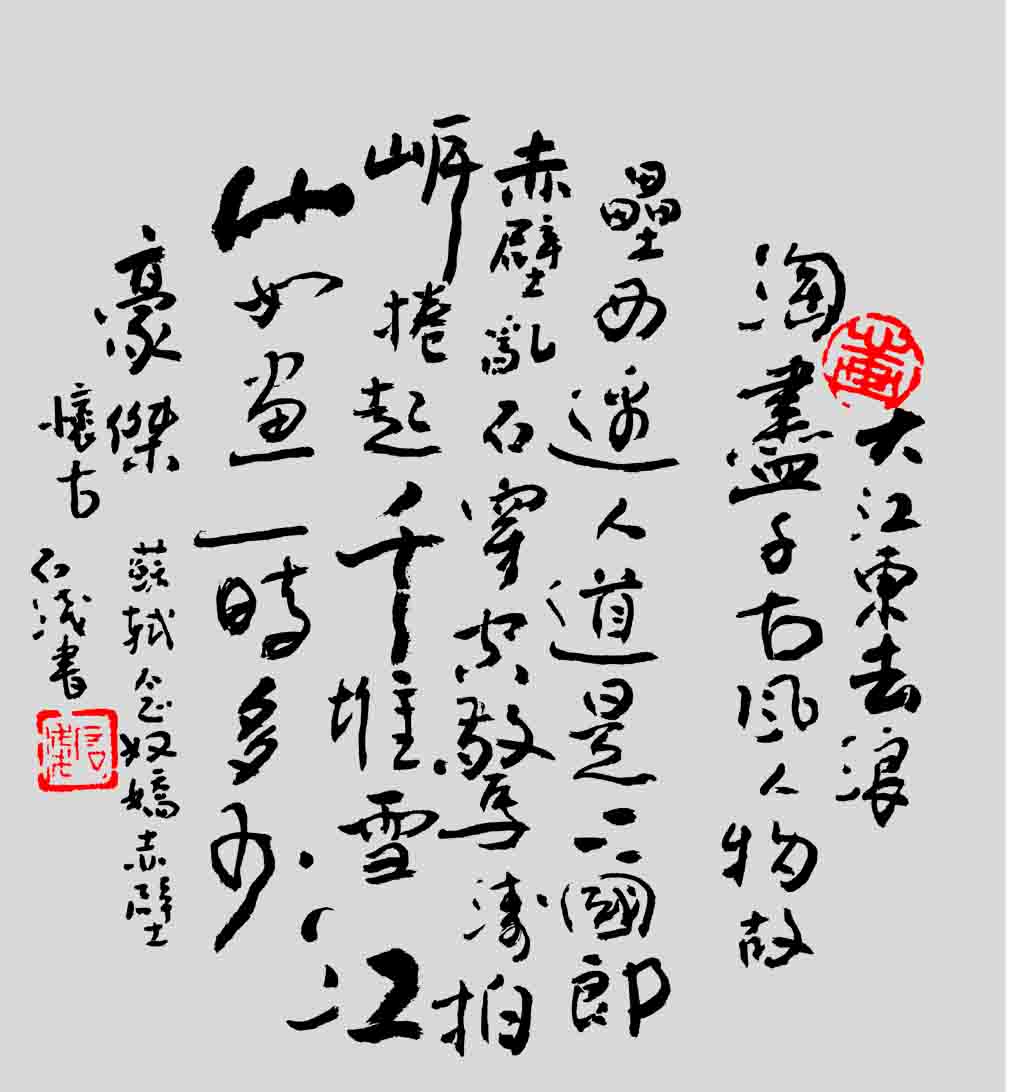 董
大江東去浪
淘盡千古風人物故
壘西邊人道是三國郎
赤壁亂石穿空驚濤拍
岸捲起千堆雪江
山如畫一時多少
豪傑
蘇軾念奴嬌赤壁
懷古
石書